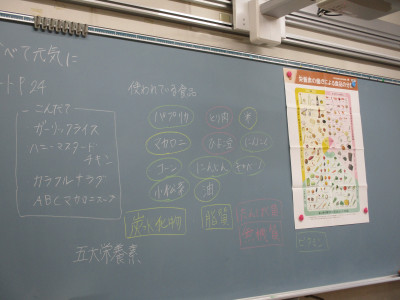 べて元気に
ートP24
こんだて
ガーリックライス
ハニーマスタード
チキン
カラフルサラダ
ABCマカロニスープ
使われている食品
パプリカ
とり肉
米
マカロニ
にんにく
コーン
にんじん
小松菜
油
炭水化物
脂質
無機質
ビタミン
五大栄養素